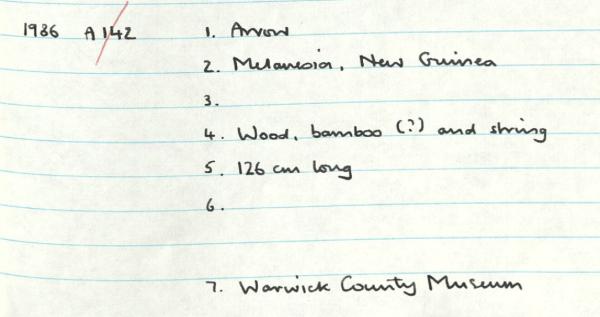 1986 A142 1. Arrow
2. Melanesia, New Guinea
3.
4. Wood, bamboo (?) and string
5. 126 cm long
6.
7. Warwick County Museum